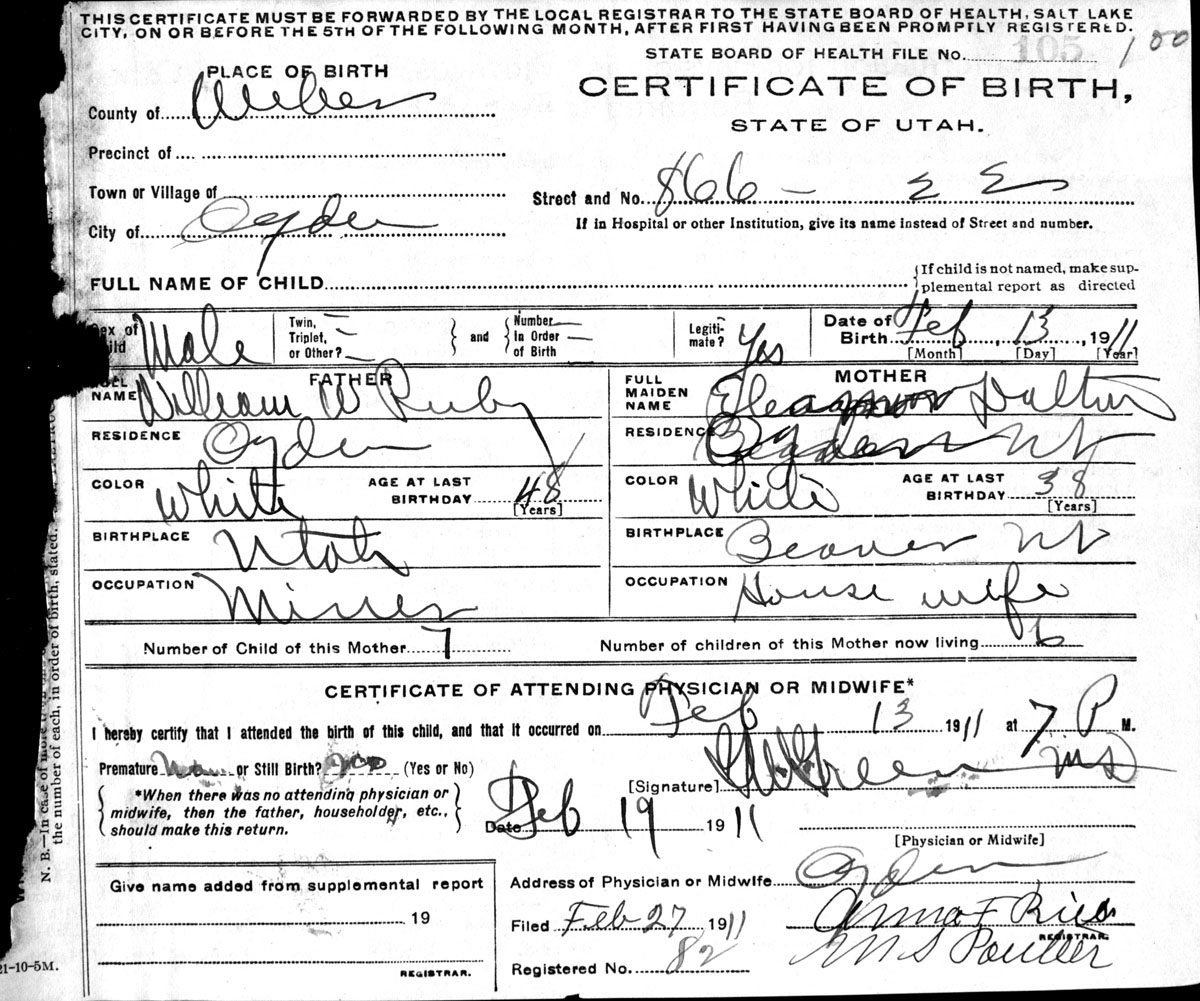 THIS CERTIFICATE MUST BE FORWARDED BY THE LOCAL REGISTRAR TO THE STATE BOARD OF HEALTH, SALT LAKE
CITY, ON OR BEFORE THE 5TH OF THE FOLLOWING MONTH, AFTER FIRST HAVING BEEN PROMPTLY REGISTERED.
STATE BOARD OF HEALTH FILE No. 105 100
PLACE OF BIRTH
CERTIFICATE OF BIRTH,
STATE OF UTAH.
County of Weber
Precinct of
Town or Village of
Street and No. 866 –
City of Ogden
If in Hospital or other Institution, give its name instead of Street and number.
FULL NAME OF CHILD
If child is not named, make sup-
plemental report as directed
Sex of Child Male
Twin, Triplet, or Other?
and
Number In Order of Birth
Legiti-mate? Yes
Date of Birth Feb, 13, 1911
[Month] [Day] [Year]
FATHER
FULL NAME William W Ruby
RESIDENCE Ogden
COLOR White
AGE AT LAST BIRTHDAY 48
[Years]
BIRTHPLACE Utah
OCCUPATION Miner
MOTHER
FULL MAIDEN NAME Eleanor Dalton
RESIDENCE Ogden Ut
COLOR White
AGE AT LAST BIRTHDAY 38
[Years]
BIRTHPLACE Beaver Ut
OCCUPATION House wife
Number of Child of this Mother 7
Number of children of this Mother now living 6
CERTIFICATE OF ATTENDING PHYSICIAN OR MIDWIFE*
I hereby certify that I attended the birth of this child, and that it occurred on Feb 13 1911 at 7 P M.
Premature or Still Birth? (Yes or No)
[Signature] Green MD
*When there was no attending physician or
midwife, then the father, householder, etc.,
should make this return.
Date Feb 19 1911
[Physician or Midwife]
Give name added from supplemental report
19
REGISTRAR.
Address of Physician or Midwife Ogden
Filed Feb 27 1911
Anna F
REGISTRAR.
Registered No. 82
M S
N. B.—In case of more
the number of each, in order of birth, stated.
21-10-5M.